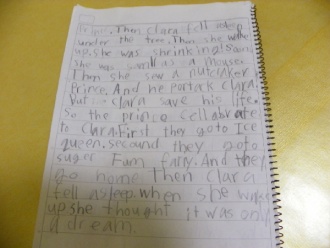 Then Clara fell asleep
under the tree. Then she woke
up. she was shrinking! Soon,
she was small as a mouse.
Then she saw a nutcraker
Prince. And he portack Clara.
but Clara save his life.
So the prince cellabrate
to Clara. First they go to Ice
queen. second they go to
suger Fum farry. And they
go home. Then Clara
fell asleep. when she woke
up she thought it was only
a dream.